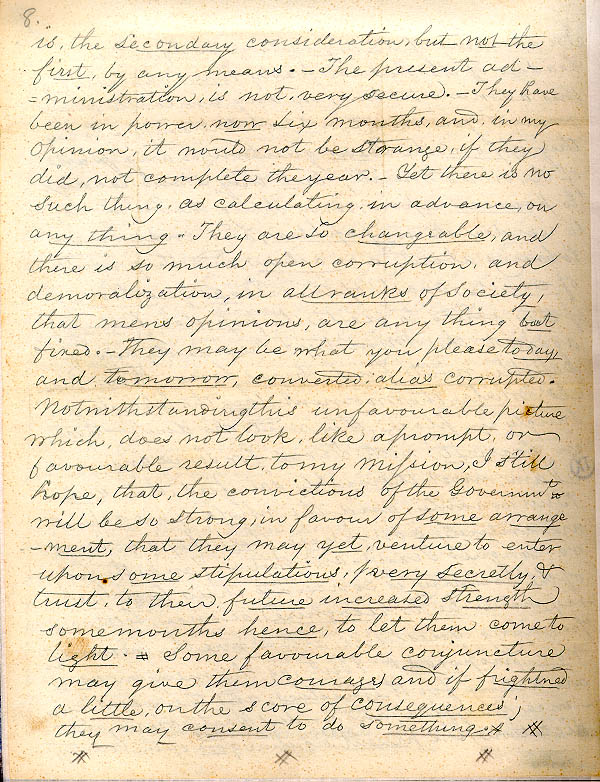 8.
is, the secondary consideration, but not the
first, by any means. - The present ad-
=ministration, is not, very secure. - They have
been in power, now six months, and, in my
opinion, it would not be strange, if they
did, not complete the year. - Yet there is no
such thing, as calculating, in advance, on
any thing - They are so changeable, and
there is so much open corruption, and
demoralization, in all ranks of society,
that mens opinions, are any thing but
fixed. - They may be what you please today,
and tomorrow, converted, alias corrupted.
Notwithstanding this unfavourable picture
which, does not look, like a prompt, or
favourable result, to my mission, I still
hope, that, the convictions of the Governmnt
will be so strong, in favour of some arrange
-ment, that they may yet, venture to enter
upon some stipulations, very secretly, &
trust, to their future increased strength
some months hence, to let them come to
light. = Some favourable conjuncture
may give them courage, and if frightned
a little, on the score of consequences,
they may consent to do something.